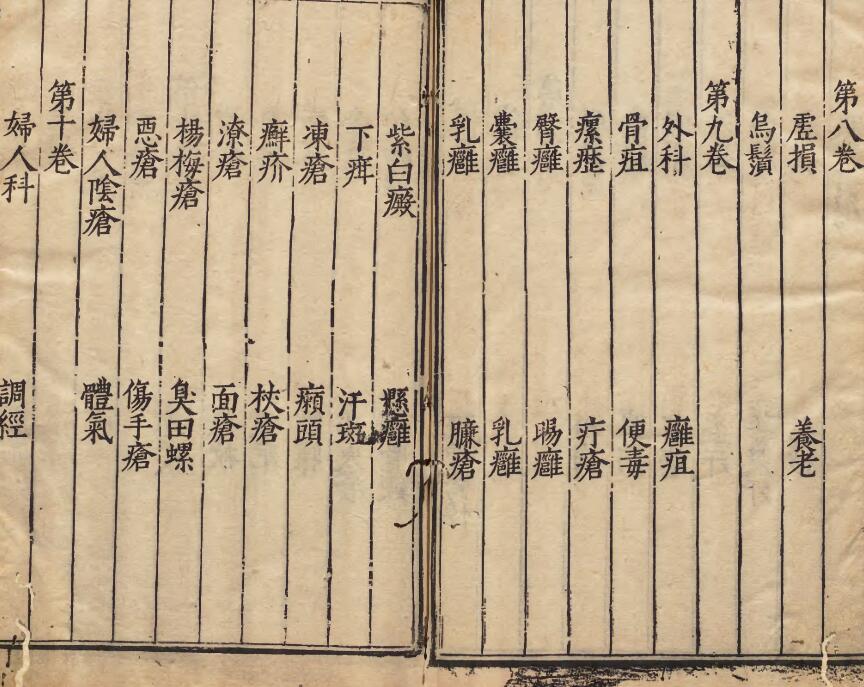 第八巻
虗損 養老
烏鬚
第九巻
外科 癰疽
骨疽 便毒
瘰癧 疔瘡
臀癰 腸癰
囊癰 乳癰
乳癰 臁瘡
紫白癜 懸癰
下疳 汗斑
凍瘡 癩頭
癬疥 杖瘡
潦瘡 面瘡
楊梅瘡 臭田螺
惡瘡 傷手瘡
婦人陰瘡 體氣
第十巻
婦人科 調經